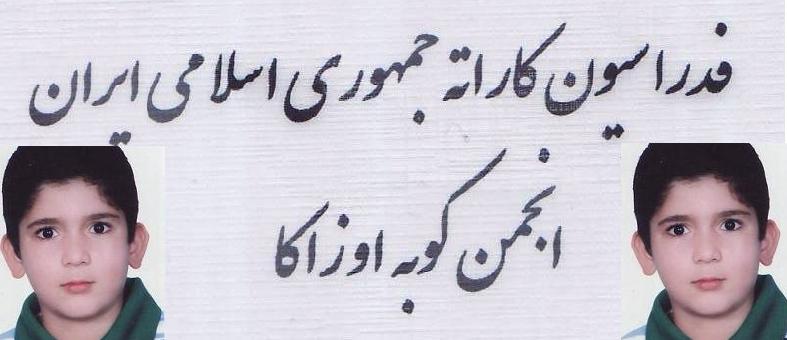 فدراسیون کاراته جمهوری اسلامی ایران
انجمن کوبه اوزاکا